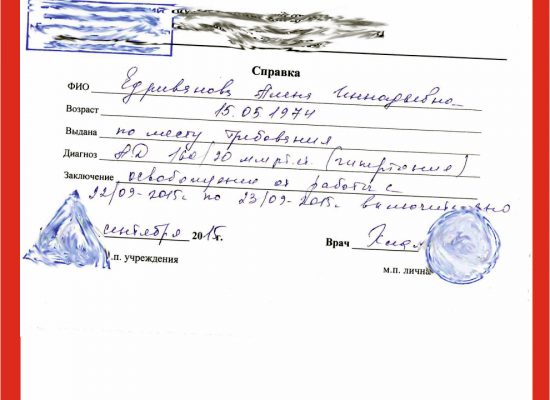 Справка
ФИО Едривянова Алена Геннадьевна
Возраст 15.05.1974
Выдана по месту Требования
Диагноз АД 160/90 мм рт.ст. (гипертония)
Заключение освобождение от работы с
22/09-2015г по 23/09-2015г включительно
сентября 2015г. Врач
.п. учреждения м.п. лична